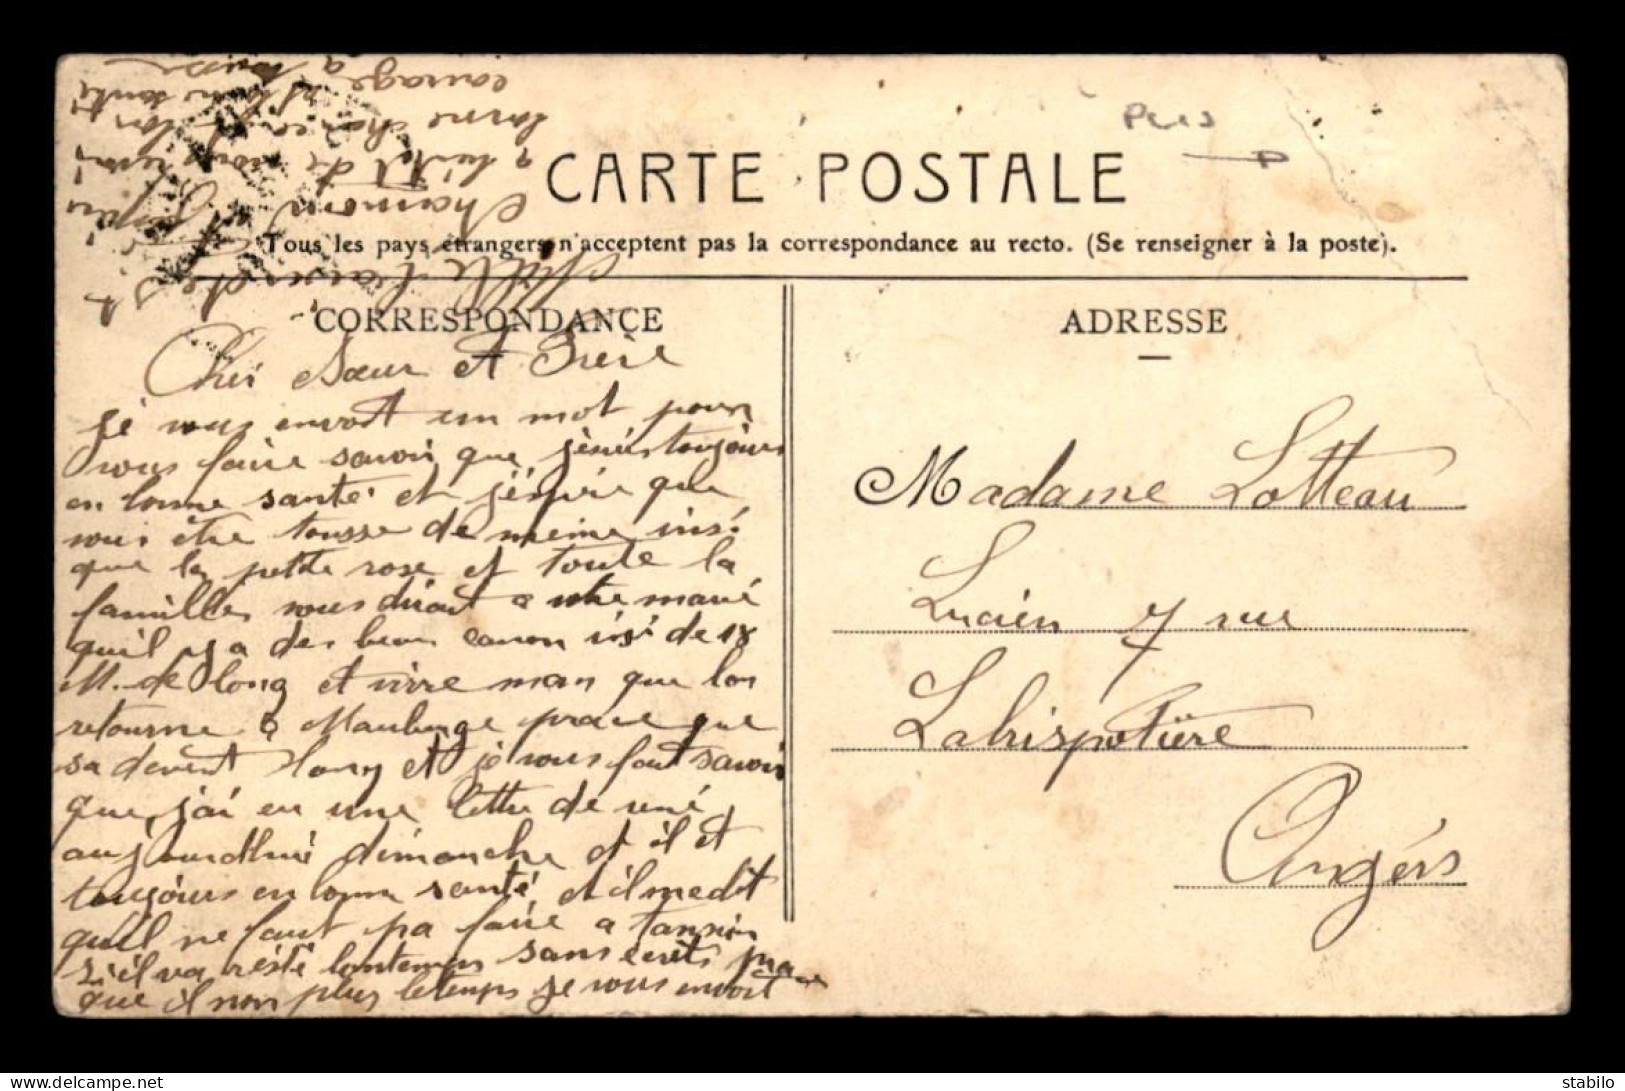 Plis
CARTE POSTALE
Tous les pays étrangers n'acceptent pas la correspondance au recto. (Se renseigner à la poste).
CORRESPONDANCE
Cher Sœur et Frère
je vous envoit un mot pour
vous faire savoir que toujours
en bonne santé et j'éspère que
vous être tousse de meme insi
que la petite rose et toute la
famille vous dirait a votre marié
quil y a des beau canon insi de 18
M. de long et vivre man que lon
retourne a Maubeuge parce que
sa devient long et je vous fait savoir
que j'ai eu une lettre de réné
aujourdhui dimanche et il et
toujours en bonne santé et il me dit
quil ne faut pa faire a tansion
si il va résté lontemps sans ecrits parce
que il non plus le temps je vous envoit
Mille baisers et
Charmond
a bientot de vous revoir
bonne chance et bonne santé
courage a tousse
ADRESSE
Madame Lotteau
Lucien 7 rue
Labrispotière
Angérs
delcampe.net
stabilo